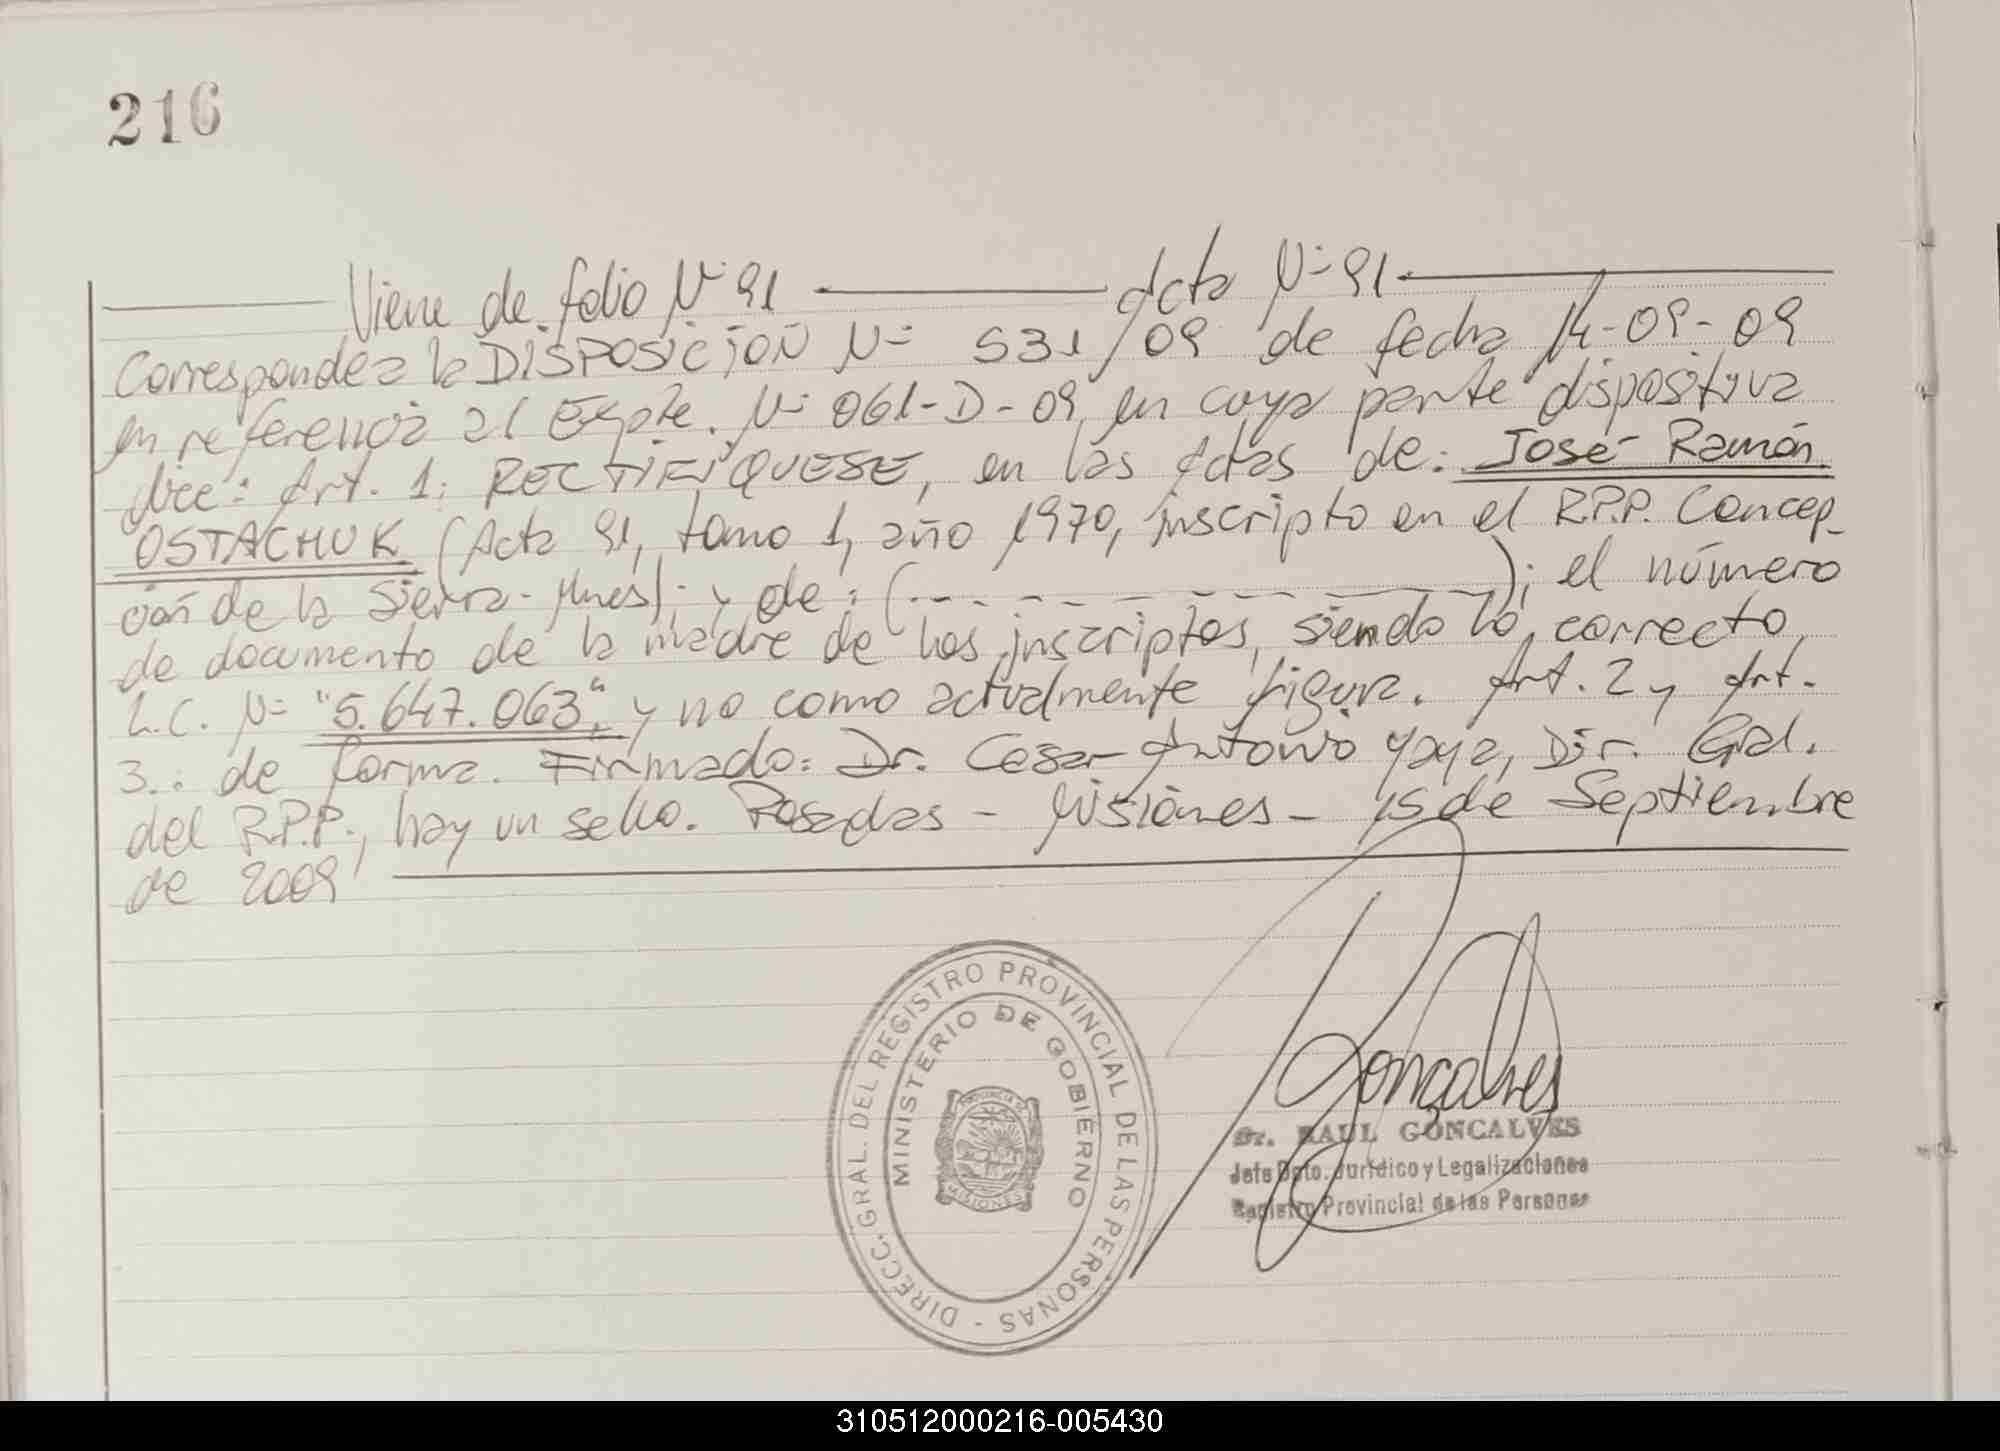 216
Viene de folio Nº 91 ———— Acta Nº 91.————
Corresponde a la DISPOSICIÓN Nº 531/09 de fecha 14-09-09
en referencia al Expte. Nº 061-D-09, en cuya parte dispositiva
dice: Art. 1: RECTIFIQUESE, en las Actas de: José Ramón
OSTACHUK (Acta 91, tomo 1, año 1970, inscripto en el R.P.P. Concep_
ción de la Sierra - Mnes); y de: (- - - - - - - - - - -); el número
de documento de la madre de los inscriptos, siendo lo correcto,
L.C. Nº "5.647.063", y no como actualmente figura. Art. 2 y Art.
3.: de forma. Firmado: Dr. Cesar Antonio Yaya, Dir. Gral.
del R.P.P., hay un sello. Posadas - Misiones - 15 de Septiembre
de 2009
DIRECC. GRAL. DEL REGISTRO PROVINCIAL DE LAS PERSONAS -
MINISTERIO DE GOBIERNO
PROVINCIA DE
MISIONES
Goncalves
Sr. RAUL GONCALVES
Jefe Dpto. Jurídico y Legalizaciones
Registro Provincial de las Personas
310512000216-005430